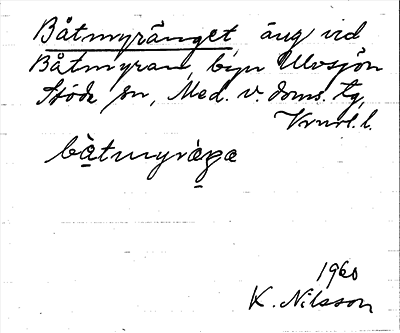 Båtmyränget, äng vid
Båtmyran, byn Ulvsjön
Stöde sn, Med. v. doms. tg,
l.
båtmyräŋə
1960
K. Nilsson